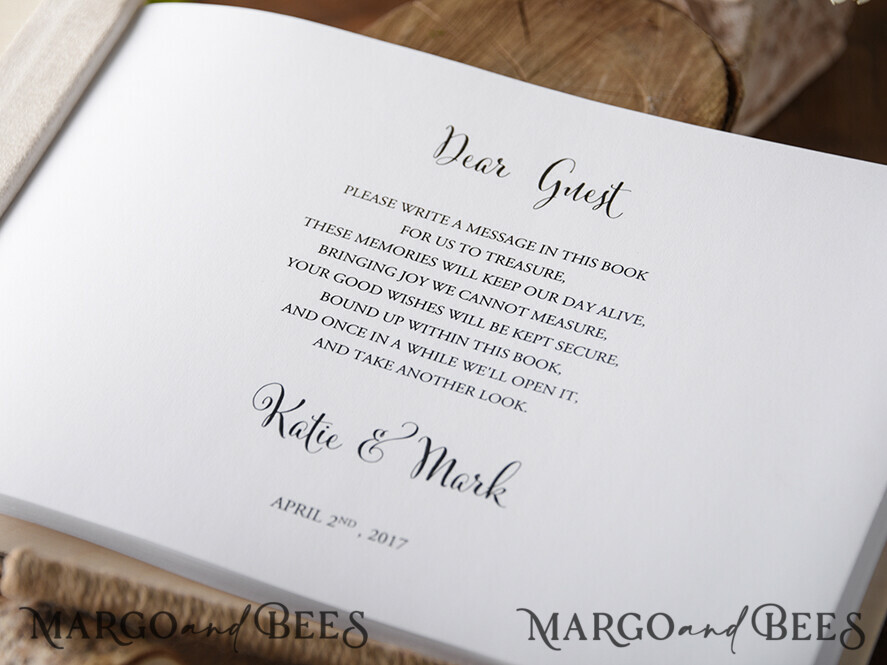 Dear Guest
PLEASE WRITE A MESSAGE IN THIS BOOK
FOR US TO TREASURE,
THESE MEMORIES WILL KEEP OUR DAY ALIVE,
BRINGING JOY WE CANNOT MEASURE,
YOUR GOOD WISHES WILL BE KEPT SECURE,
BOUND UP WITHIN THIS BOOK,
AND ONCE IN A WHILE WE'LL OPEN IT,
AND TAKE ANOTHER LOOK.
Katie & Mark
APRIL 2ND, 2017
MARGO and BEES
MARGO and BEES